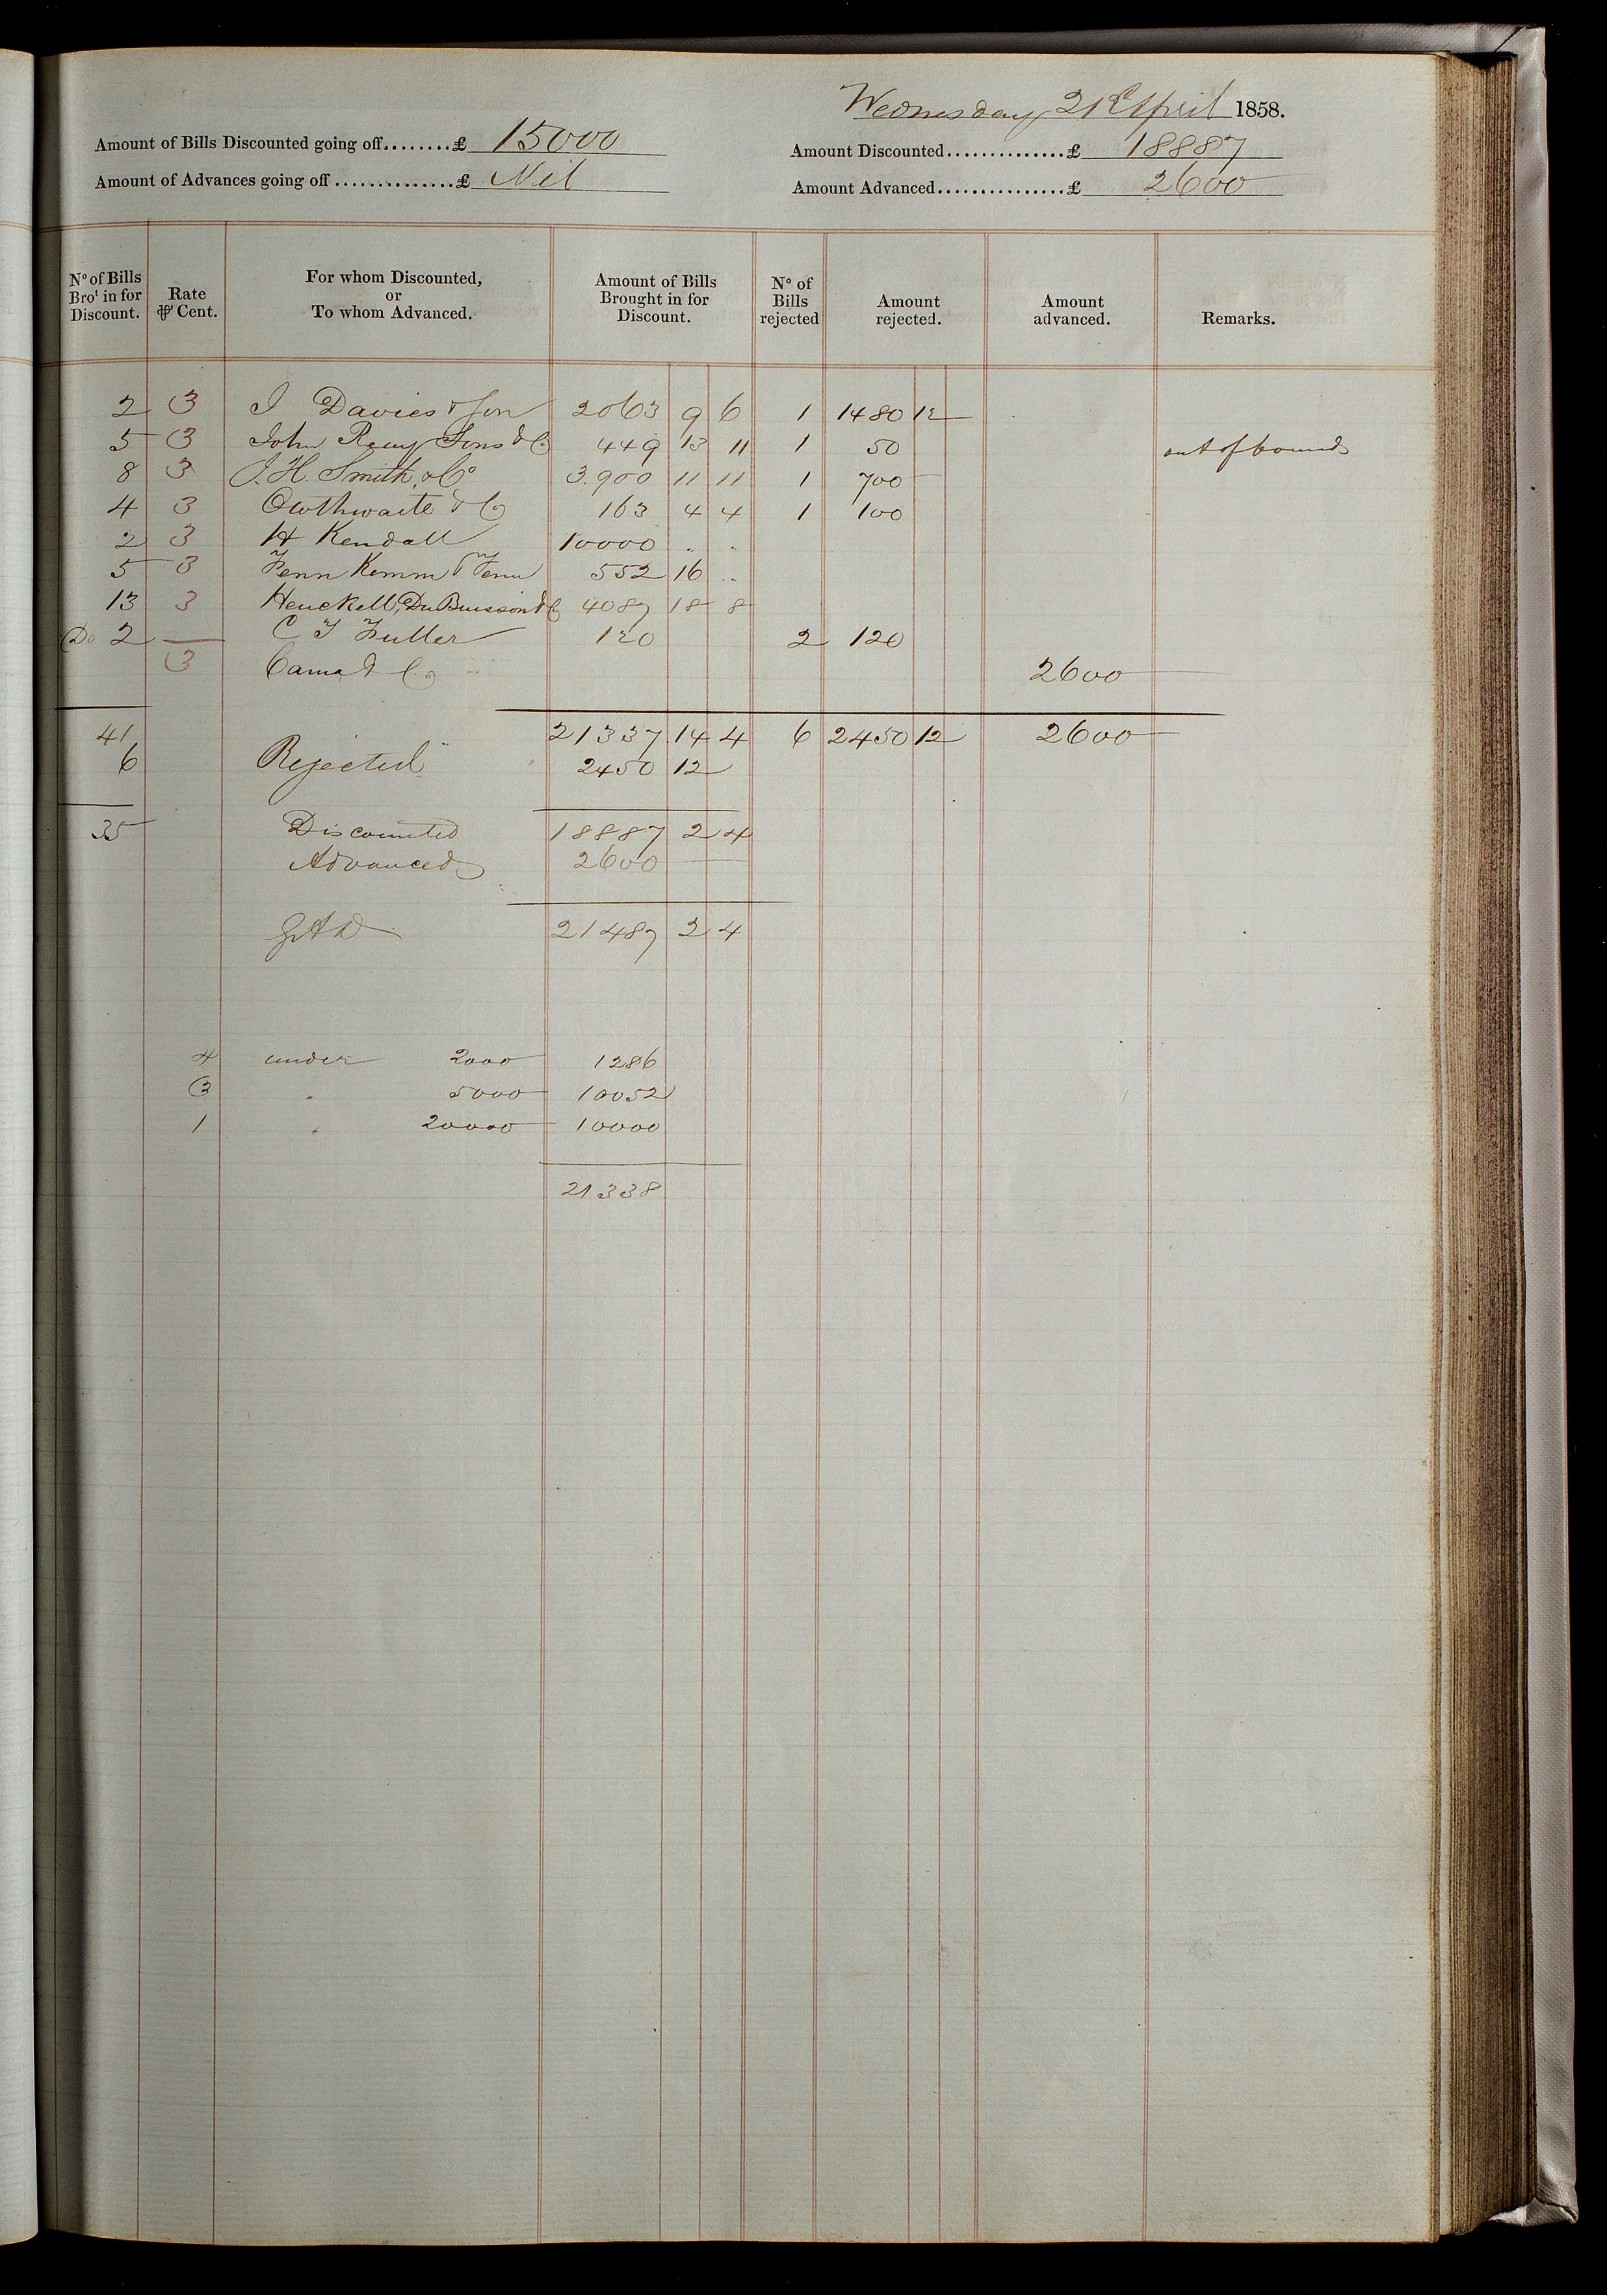 Wednesday 21st April 1858.
Amount of Bills Discounted going off........£ 15000
Amount Discounted..............£ 18887
Amount of Advances going off..............£ Nil
Amount Advanced...............£ 2600
No of Bills Brot in for Discount. Rate ⅌ Cent. For whom Discounted, or To whom Advanced. Amount of Bills Brought in for Discount. No of Bills rejected Amount rejected. Amount advanced. Remarks.
2 3 I Davies & Son 2063 9 6 1 1480 12
5 3 John Sons & Co 449 13 11 1 50 out of bounds
8 3 J. H. Smith, & Co 3.900 11 11 1 700
4 3 Outhwaite & Co 163 4 4 1 100
2 3 H Kendall 10000 . .
5 3 Fenn Kemm & Fenn 552 16 ..
13 3 Henckell, Du Buisson & Co 4087 18 8
Do 2 — C J Fuller 120 2 120
3 Cama & Co 2600
41 21337 14 4 6 2450 12 2600
6 Rejected 2450 12
35 Discounted 18887 2 4
Advanced 2600
21487 2 4
4 under 2000 1286
3 " 5000 10052
1 " 20000 10000
21338